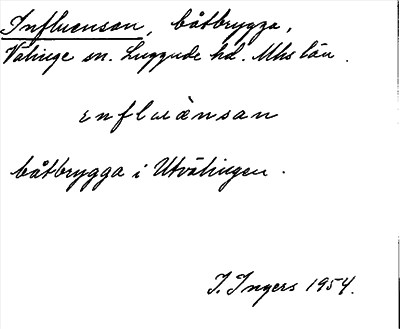 Influensan, båtbrygga,
Välinge sn. Luggude hd. Mhs län.
ɛnflɯànsan
båtbrygga i Utvälingen.
I. Ingers 1954.